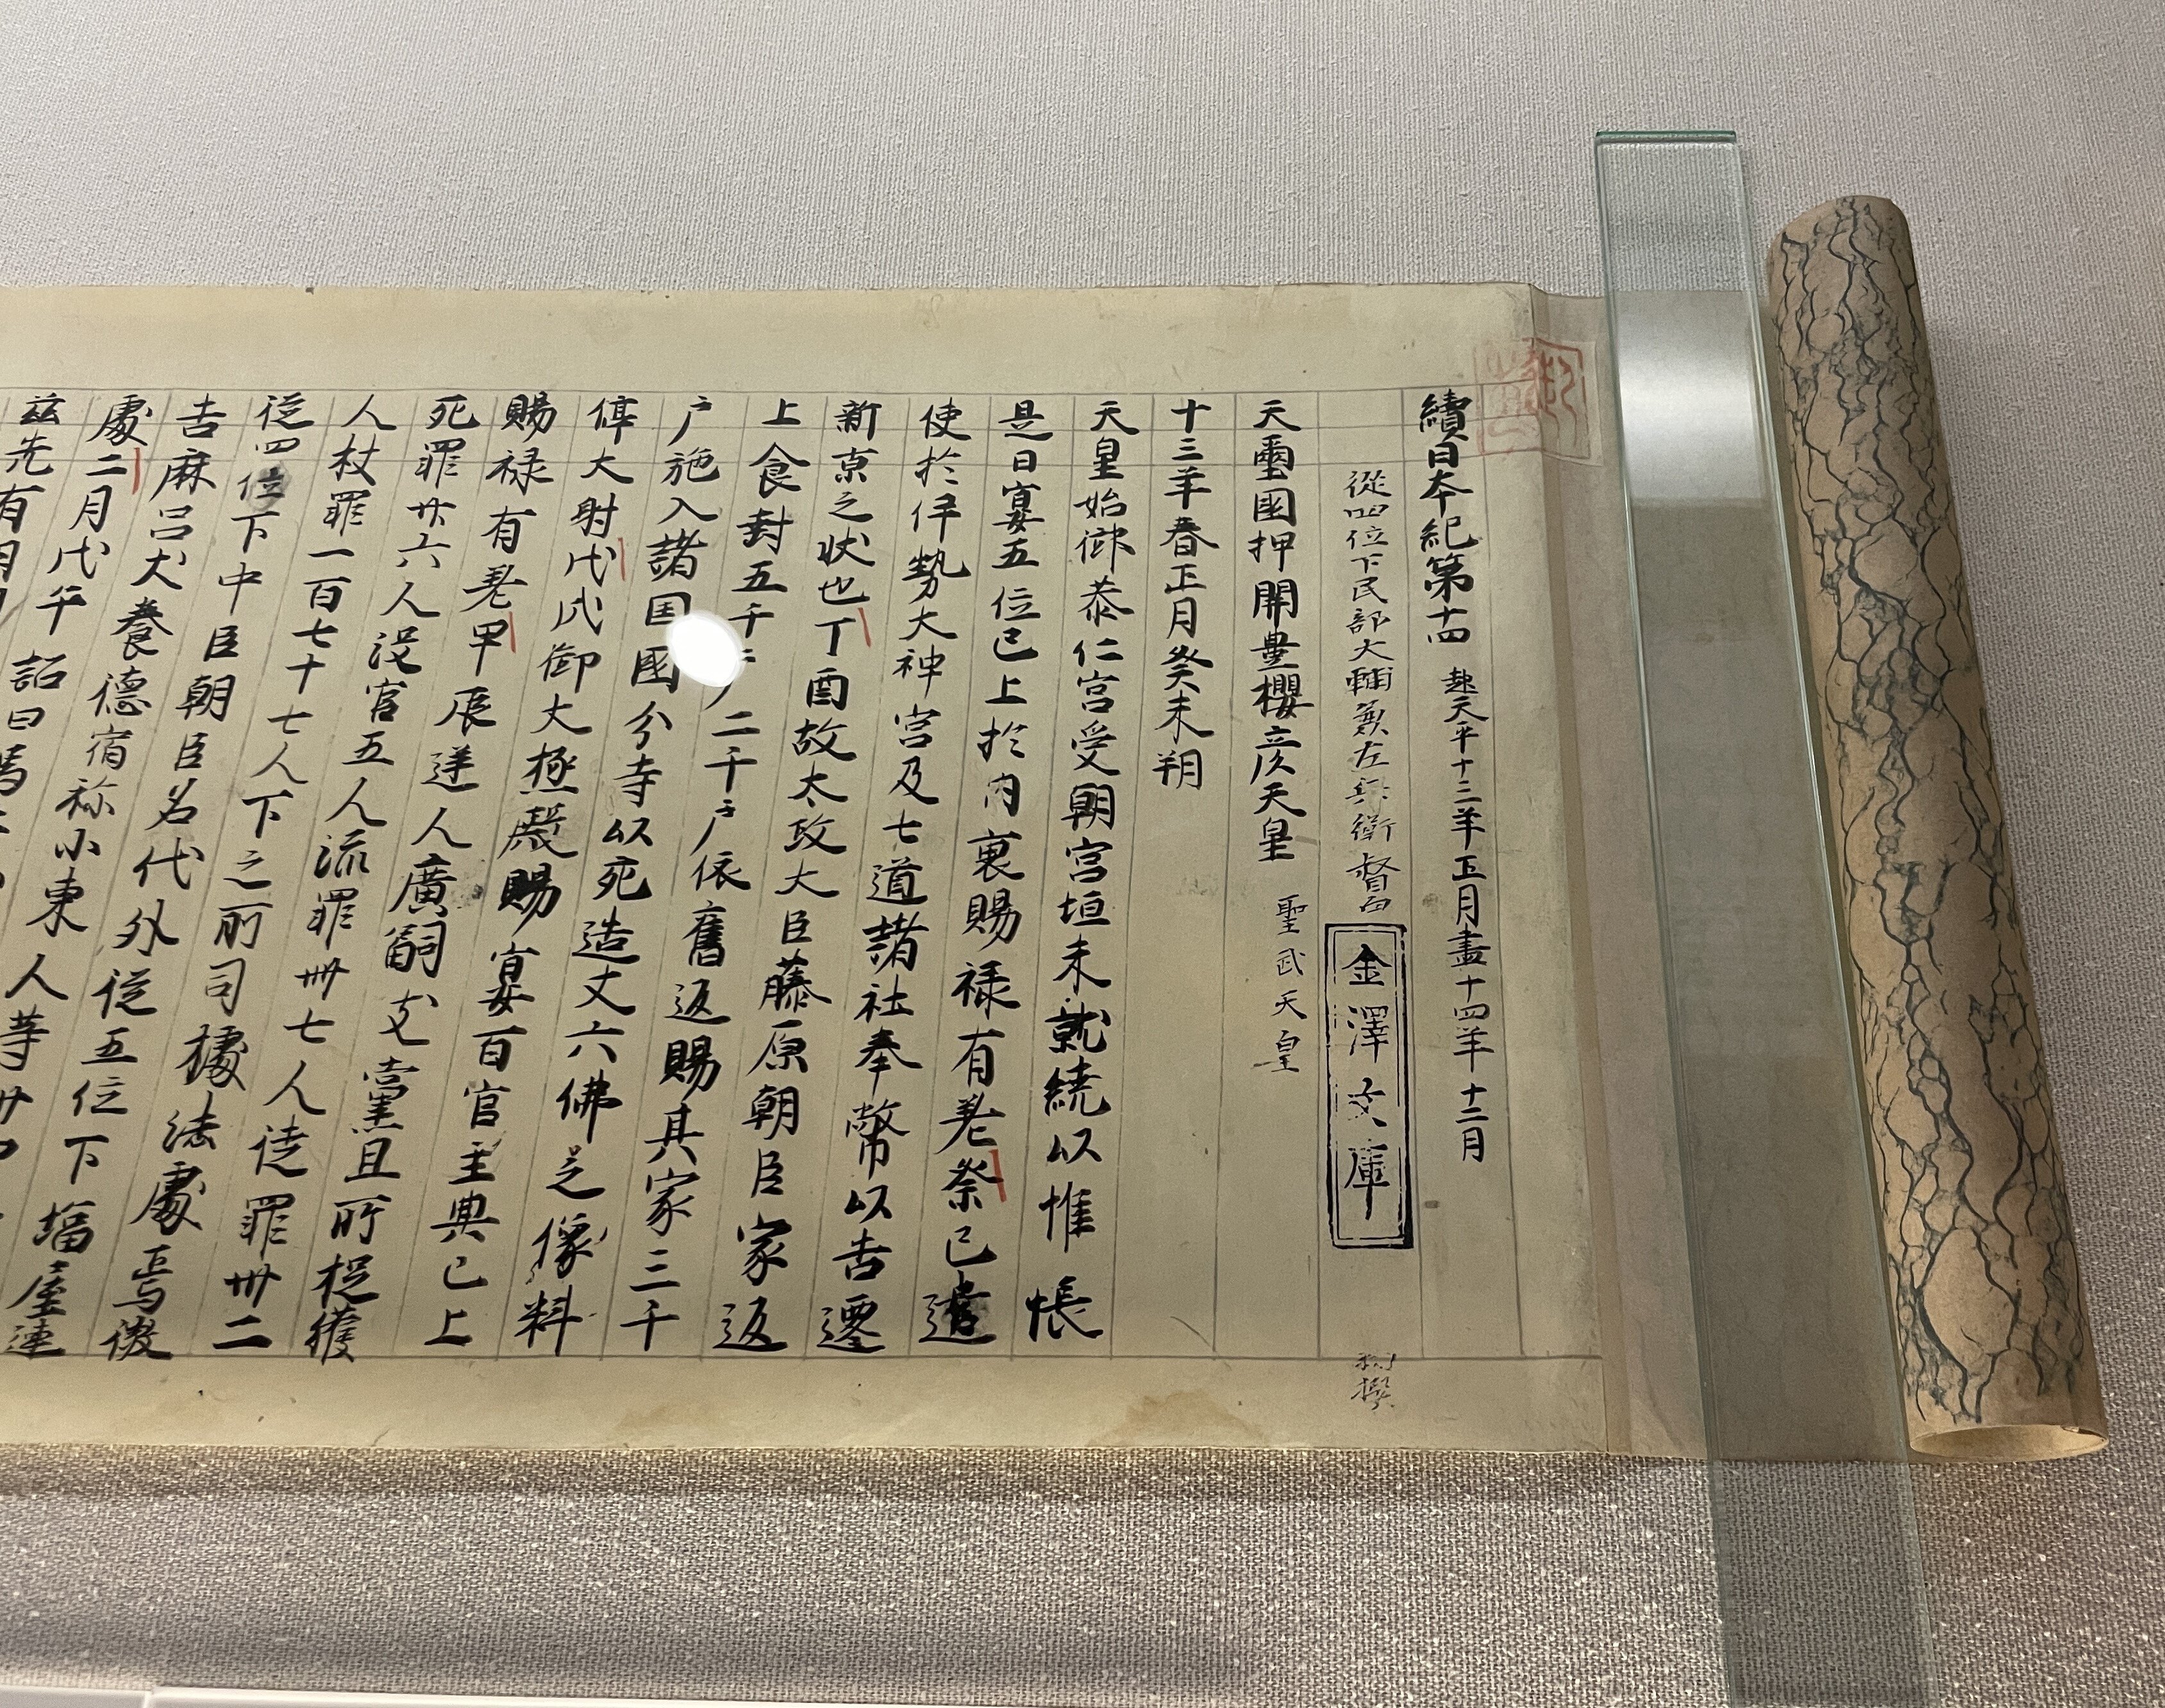 續日本紀第十四 起天平十三年正月盡十四年十二月
從四位下民部大輔兼左兵衛督
金澤文庫
撰
天璽国押開豊櫻彦天皇 聖武天皇
十三年春正月癸未朔
天皇始御恭仁宮受朝宮垣未就繞以帷帳
是日宴五位已上於内裏賜禄有差癸巳遣
使於伊勢大神宮及七道諸社奉幣以告遷
新京之状也丁酉故太政大臣藤原朝臣家返
上食封五千戸二千戸依舊返賜其家三千
戸施入諸国国分寺以死造丈六佛之像料
停大射戊戌御大極殿賜宴百官主典已上
賜禄有差甲辰逆人廣嗣支黨且所捉獲
死罪廿六人没官五人流罪卌七人徒罪卅二
人杖罪一百七十七人下之所司據法處焉徴
從四位下中臣朝臣名代外從五位下塩屋連
吉麻呂大養德宿祢小東人等卅四
處二月戊午 詔曰馬
茲先有